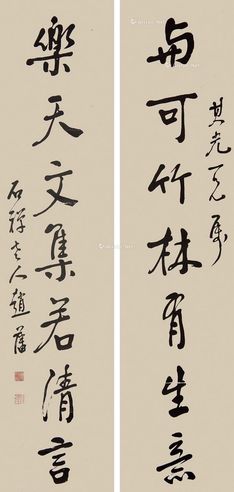 与可竹林有生意
其光一兄属
樂天文集若清言
石禪老人趙藩